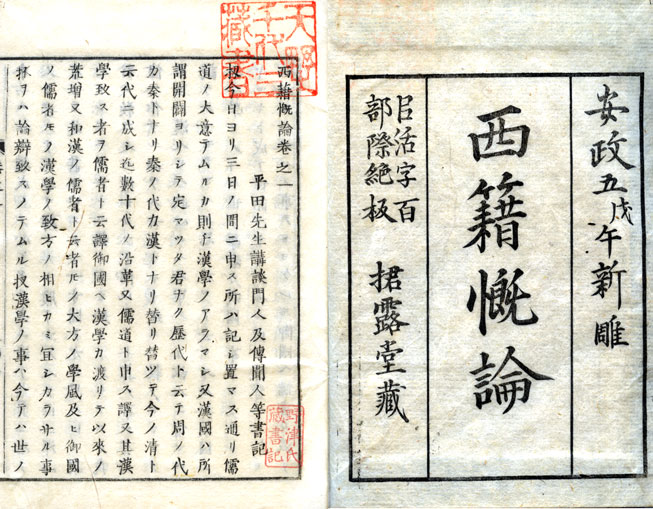 安政五戊午新雕
西籍慨論
㠯活字百
部際絶板
露堂藏
天野
千代二
藏書
西籍慨論卷之一
平田先生講談門人及傳聞人等書記
扨今日ヨリ三日ノ間ニ申ス所ハ記シ置マス通リ儒
道ノ大意テムルカ則チ漢學ノアラマシ又漢國ハ所
謂開闢ヨリシテ定マツタ君ナク歷代ト云テ周ノ代
カ秦トナリ秦ノ代カ漢トナリ替リ替ツテ今ノ清ト
云代ニ成シ迄數十代ノ沿革又儒道ト申ス譯又其漢
學致ス者ヲ儒者ト云譯御國ヘ漢學カ渡リテ以來ノ
荒增又和漢ノ儒者ト云者モノ大方ノ學風及ヒ御國
ノ儒者モノ漢學ノ致方ノ相ヒカミ宜シカラサル事
抔ヲハ論辯致スノテムル扨漢學ノ事ハ今テハ世ノ
野津氏
藏書記